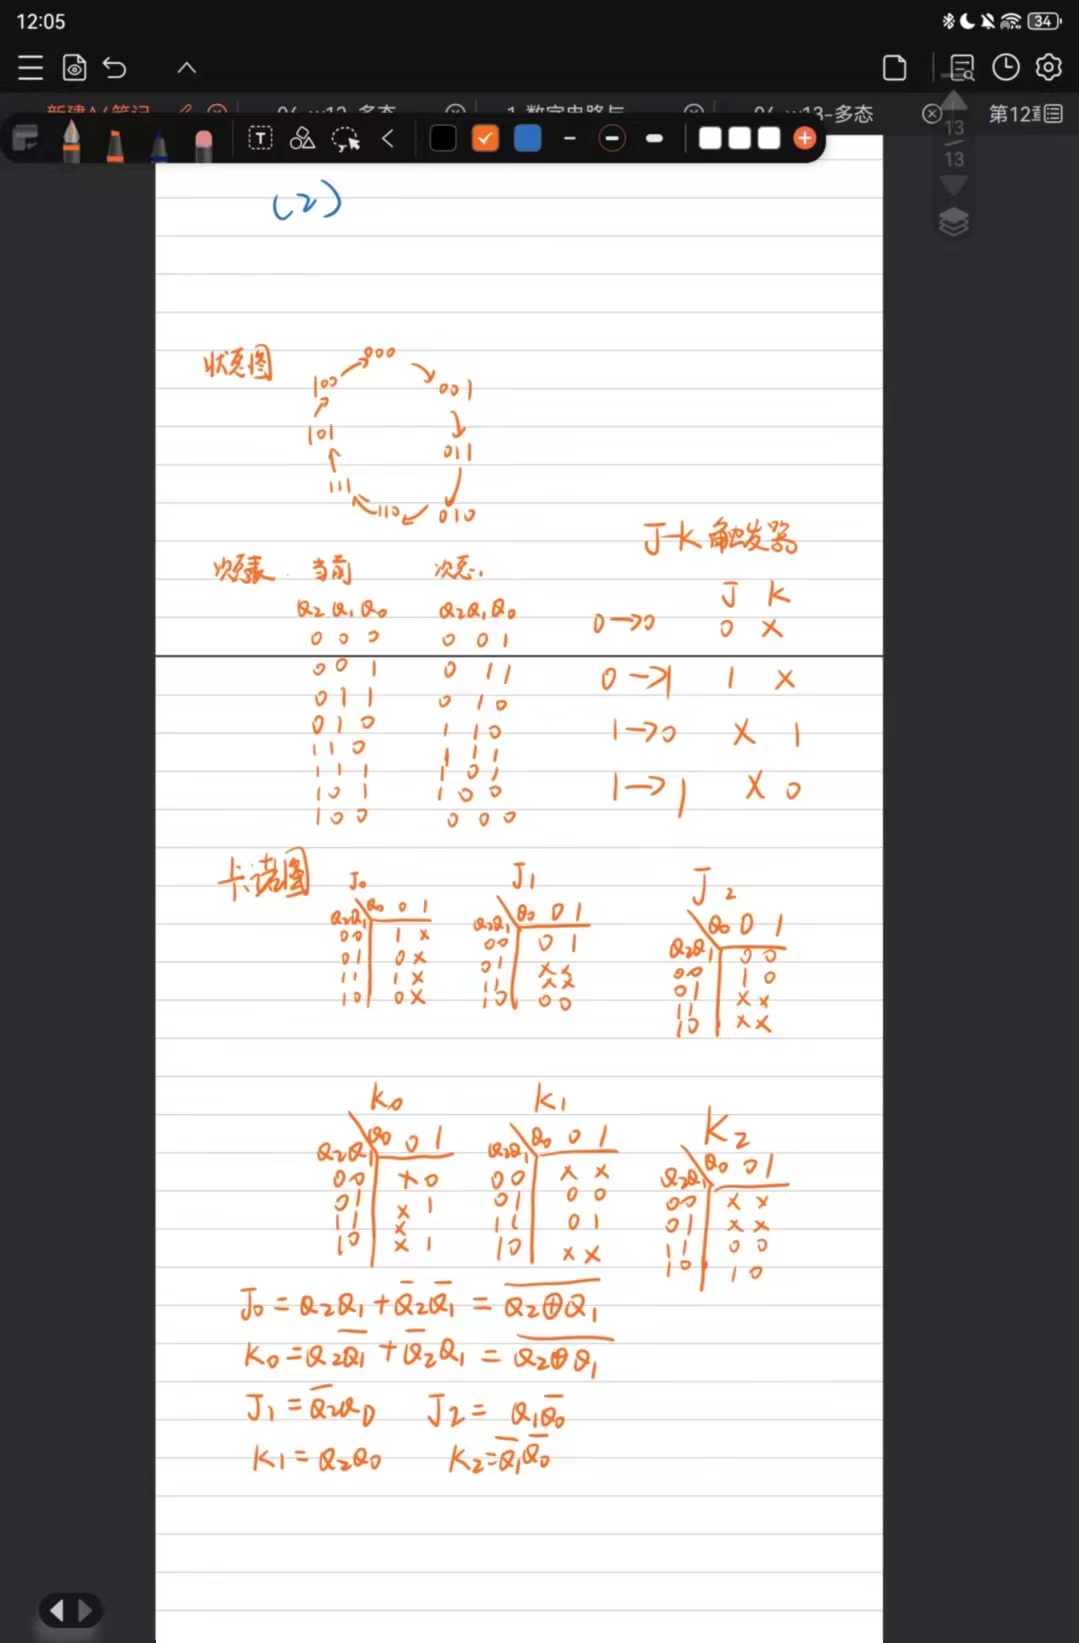 12:05
34
新建A4笔记
04_w12_多态
1.数字电路与
04_w13-多态
第12章
T
13
13
(2)
状态图
000
100
001
101
011
111
110
010
J-K 触发器
次态表 当前 次态
J K
Q2 Q1 Q0 Q2 Q1 Q0
0→0 0 X
0 0 0 0 0 1
0 0 1 0 1 1
0→1 1 X
0 1 1 0 1 0
0 1 0 1 1 0
1→0 X 1
1 1 0 1 1 1
1 1 1 1 0 1
1 0 1 1 0 0
1→1 X 0
1 0 0 0 0 0
卡诺图
J0 J1 J2
Q2Q1 Q0 0 1
00 1 X
01 0 X
11 1 X
10 0 X
Q2Q1 Q0 0 1
00 0 1
01 X X
11 X X
10 0 0
Q2Q1 Q0 0 1
00 0 0
01 1 0
11 X X
10 X X
K0 K1 K2
Q2Q1 Q0 0 1
00 X 0
01 X 1
11 X
10 X 1
Q2Q1 Q0 0 1
00 X X
01 0 0
11 0 1
10 X X
Q2Q1 Q0 0 1
00 X X
01 X X
11 0 0
10 1 0
J0 = Q2Q1 + Q̅2Q̅1 = \overline{Q2⊕Q1}
K0 = Q2Q̅1 + Q̅2Q1 = \overline{Q2⊕Q1}
J1 = Q̅2Q0 J2 = Q1Q̅0
K1 = Q2Q0 K2 = Q̅1Q̅0